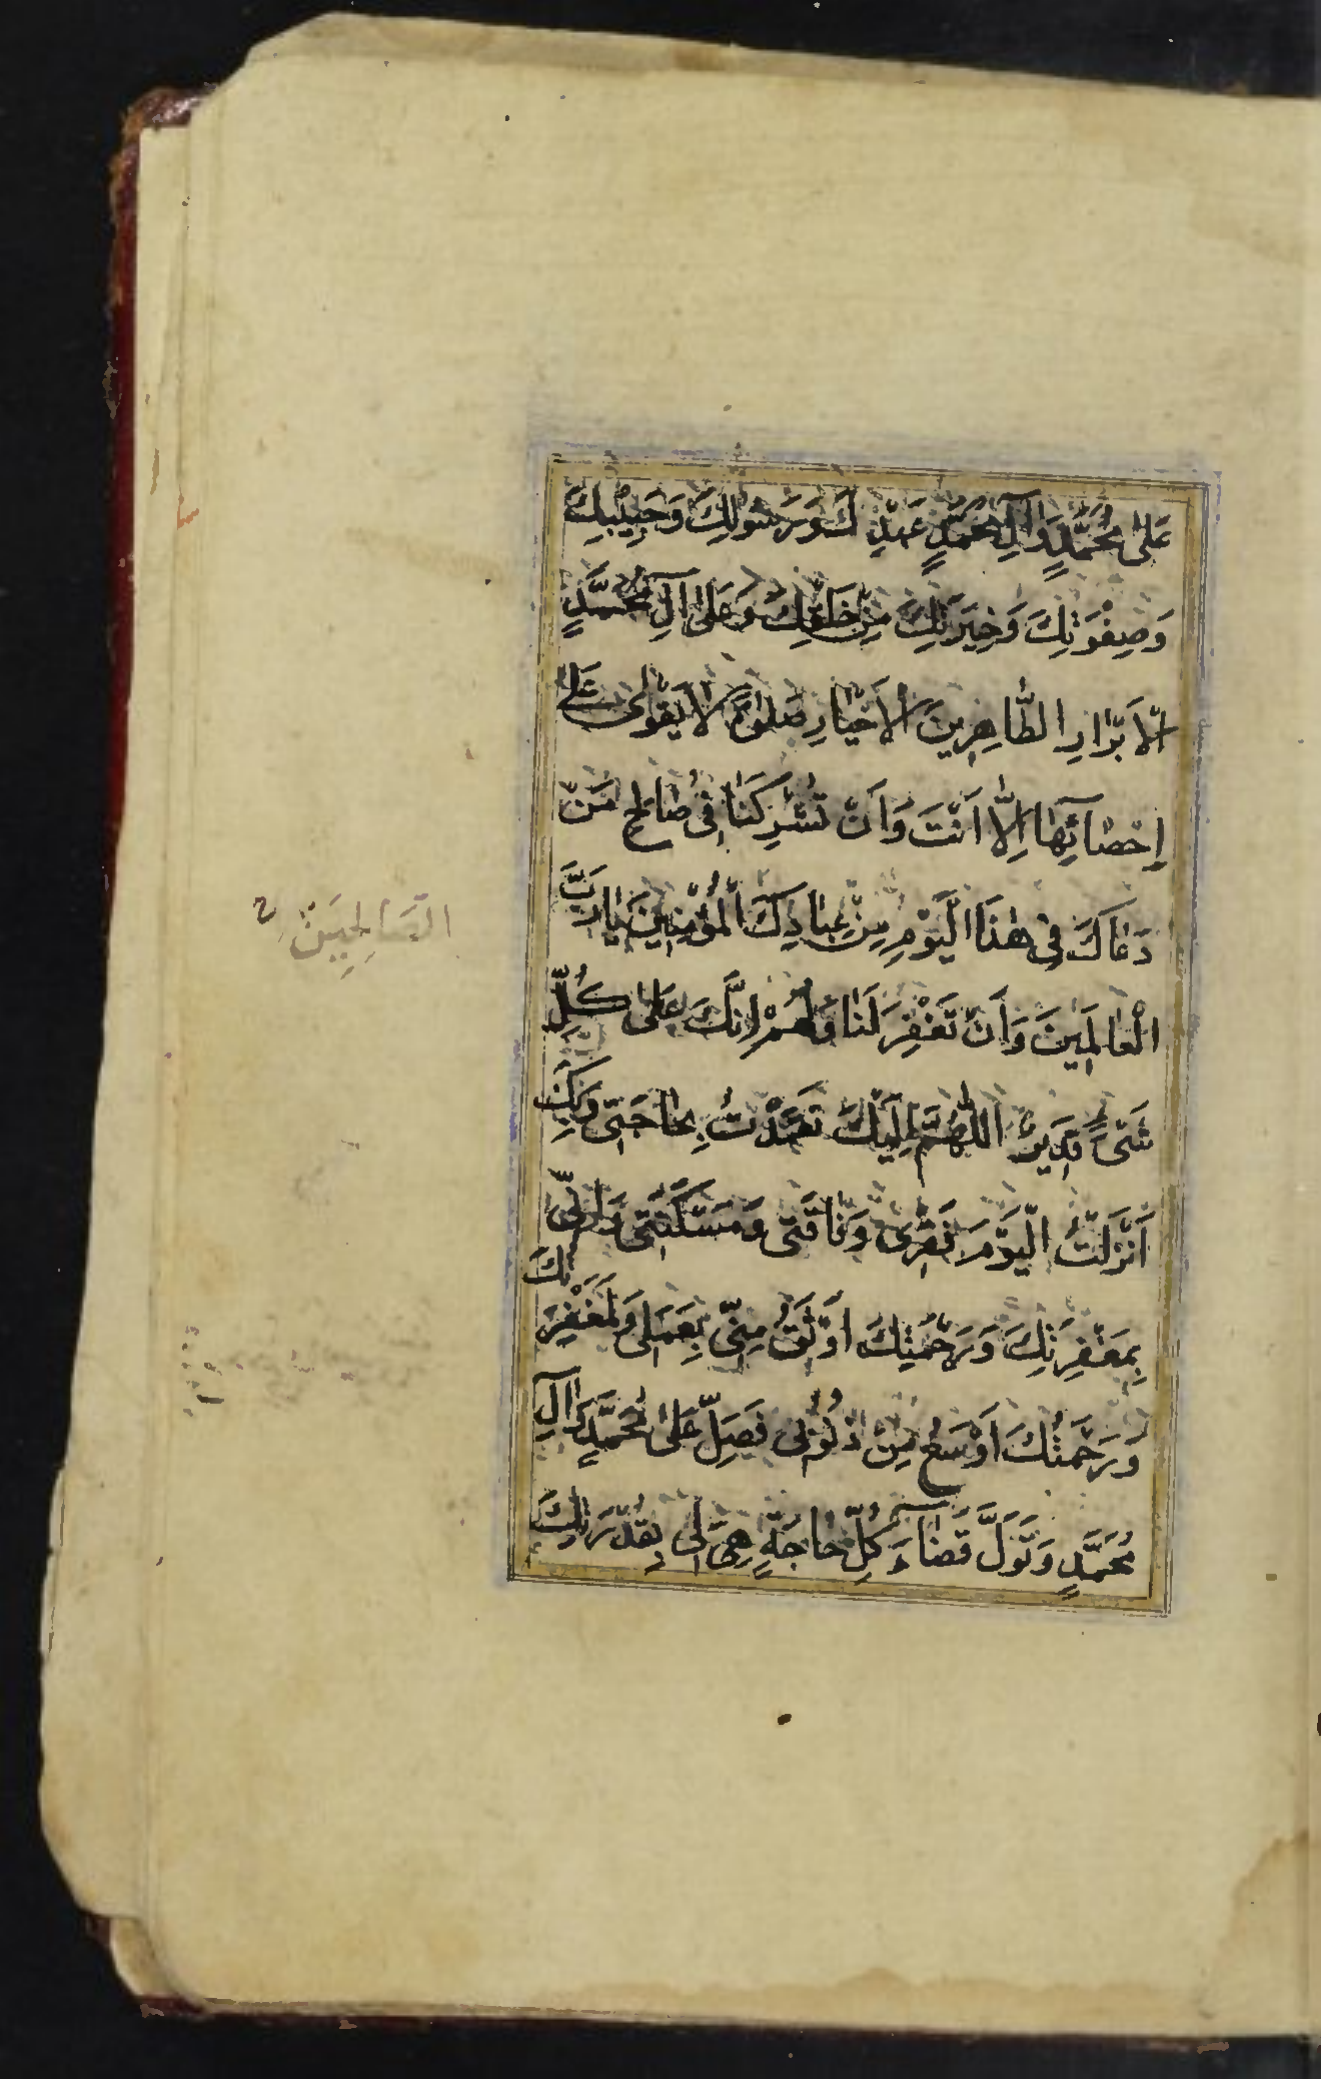 عَلىٰ مُحَمَّدٍ وَآلِ مُحَمَّدٍ عَبْدِكَ وَرَسُولِكَ وَحَبِيبِكَ
وَصِفْوَتِكَ وَخِيَرَتِكَ مِنْ خَلْقِكَ وَعَلىٰ آلِ مُحَمَّدٍ
الْاَبْرَارِ الطَّاهِرِينَ الْاَخْيَارِ صَلوٰةً لَا يَقْوىٰ عَلىٰ
اِحْصَآئِهَا اِلَّا اَنْتَ وَاَنْ تُشْرِكَنَا فِى صَالِحِ مَنْ
دَعَاكَ فِى هٰذَا الْيَوْمِ مِنْ عِبَادِكَ الْمُؤْمِنِينَ يَا رَبَّ
الْعَالَمِينَ وَاَنْ تَغْفِرَ لَنَا وَلَهُمْ اِنَّكَ عَلىٰ كُلِّ
شَىْءٍ قَدِيرٌ اَللّٰهُمَّ اِلَيْكَ تَعَمَّدْتُ بِحَاجَتِى وَبِكَ
اَنْزَلْتُ الْيَوْمَ فَقْرِى وَفَاقَتِى وَمَسْكَنَتِى وَاِنِّى
بِمَغْفِرَتِكَ وَرَحْمَتِكَ اَوْثَقُ مِنِّى بِعَمَلِى وَلَمَغْفِرَتُكَ
وَرَحْمَتُكَ اَوْسَعُ مِنْ ذُنُوبِى فَصَلِّ عَلىٰ مُحَمَّدٍ وَآلِ
مُحَمَّدٍ وَتَوَلَّ قَضَآءَ كُلِّ حَاجَةٍ هِىَ لِى بِقُدْرَتِكَ
الصَّالِحِينَ